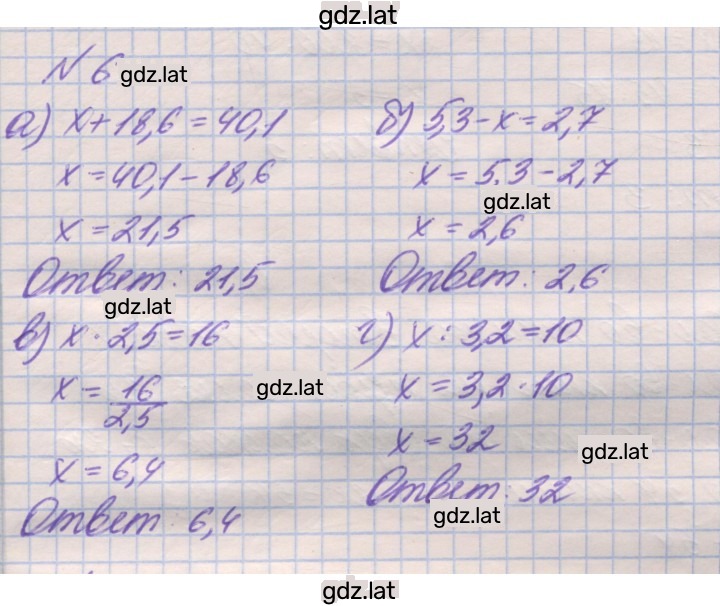 gdz.lat
N 6 gdz.lat
а) x+18,6=40,1
x=40,1-18,6
x=21,5
Ответ: 21,5
gdz.lat
б) 5,3-x=2,7
x=5.3-2,7
gdz.lat
x=2,6
Ответ: 2,6
в) x·2,5=16
x=16/2,5
gdz.lat
x=6,4
Ответ 6,4
г) x:3,2=10
x=3,2·10
x=32
gdz.lat
Ответ: 32
gdz.lat
gdz.lat